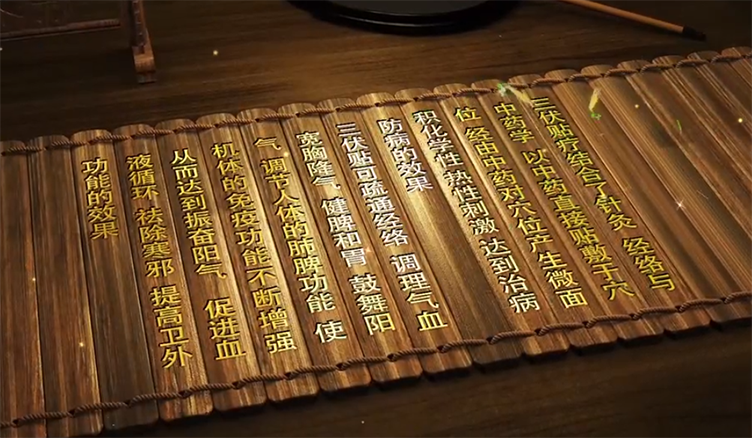 三伏贴疗结合了针灸 经络与
中药学 以中药直接贴敷于穴
位 经由中药对穴位产生微面
积化学性 热性刺激 达到治病
防病的效果
三伏贴可疏通经络 调理气血
宽胸隆气 健脾和胃 鼓舞阳
气 调节人体的肺脾功能 使
机体的免疫功能不断增强
从而达到振奋阳气 促进血
液循环 祛除寒邪 提高卫外
功能的效果